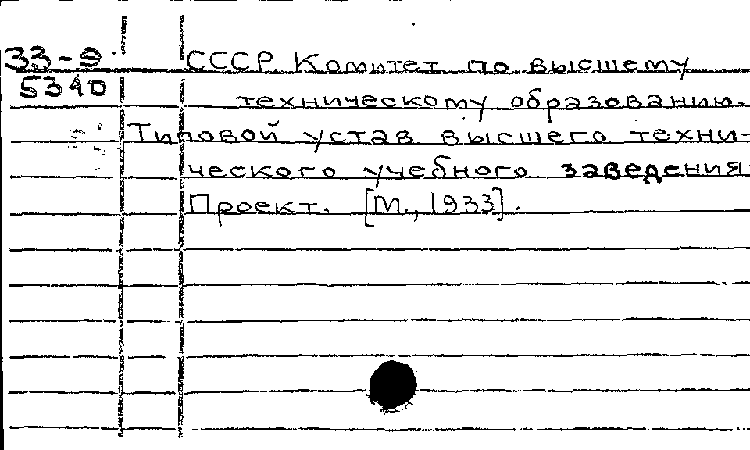 33-9 СССР Комитет по высшему
5340 техническому образованию.
Типовой устав высшего техни-
ческого учебного заведения
Проект. [М., 1933].